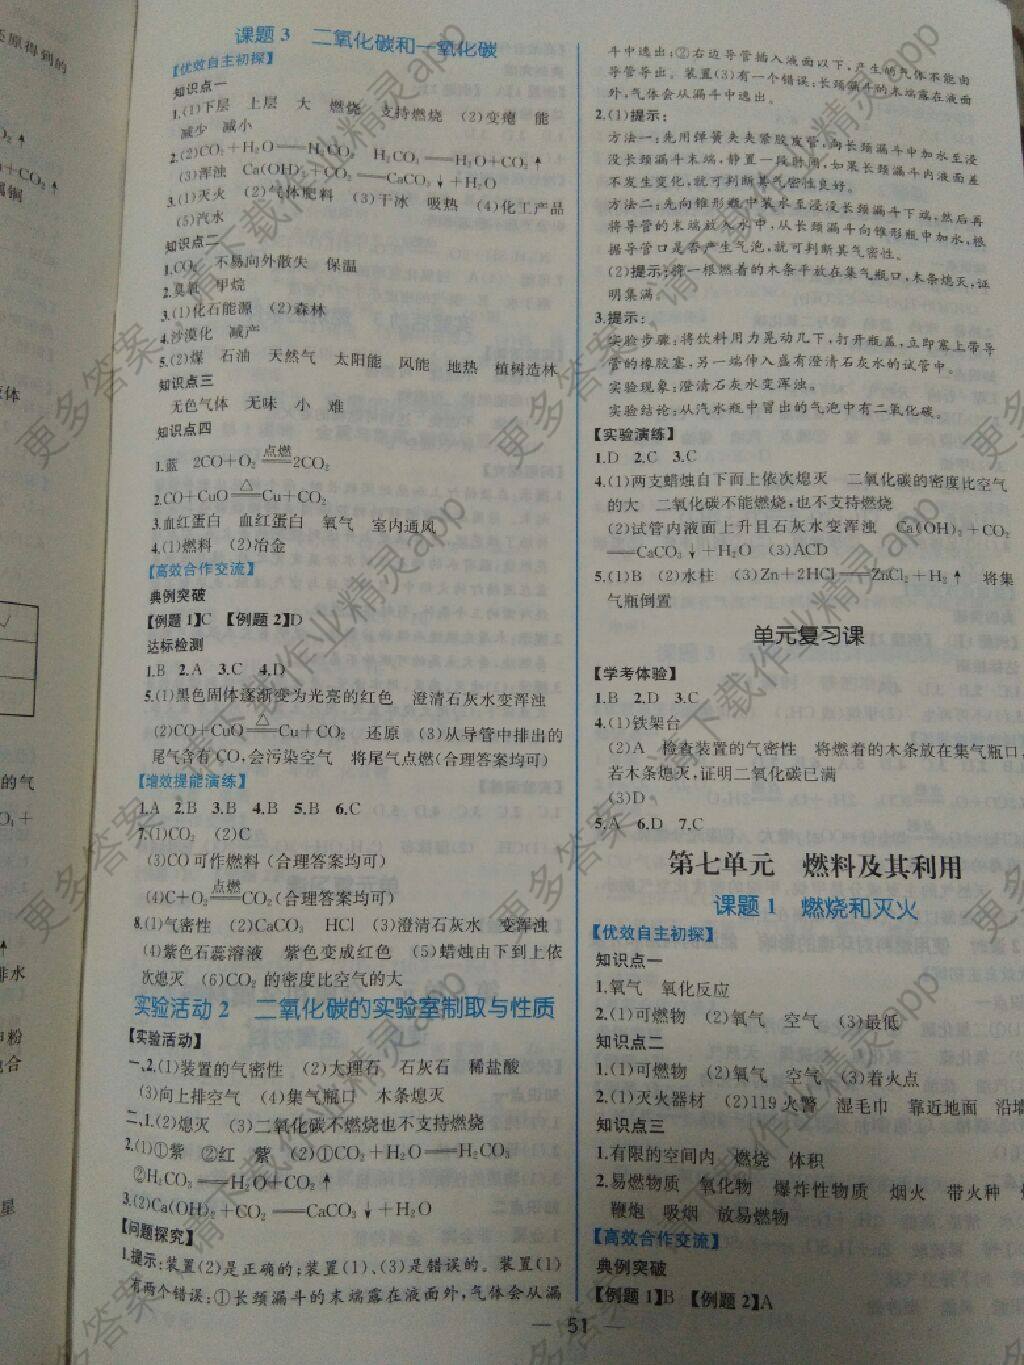 课题 3 二氧化碳和一氧化碳
【优效自主初探】
知识点一
1.(1)下层 上层 大 燃烧 支持燃烧 (2)变炮 能
减少 减小
2.(2)CO₂+H₂O══H₂CO₃ H₂CO₃══H₂O+CO₂↑
(3)浑浊 Ca(OH)₂+CO₂══CaCO₃↓+H₂O
3.(1)灭火 (2)气体肥料 (3)干冰 吸热 (4)化工产品
(5)汽水
知识点二
1.CO₂ 不易向外散失 保温
2.臭氧 甲烷
3.(1)化石能源 (2)森林
4.沙漠化 减产
5.(2)煤 石油 天然气 太阳能 风能 地热 植树造林
知识点三
无色气体 无味 小 难
知识点四
1.蓝 2CO+O₂ 点燃══2CO₂
2.CO+CuO △══Cu+CO₂
3.血红蛋白 血红蛋白 氧气 室内通风
4.(1)燃料 (2)冶金
【高效合作交流】
典例突破
【例题 1】C 【例题 2】D
达标检测
1.B 2.A 3.C 4.D
5.(1)黑色固体逐渐变为光亮的红色 澄清石灰水变浑浊
(2)CO+CuO △══Cu+CO₂ 还原 (3)从导管中排出的
尾气含有CO,会污染空气 将尾气点燃(合理答案均可)
【增效提能演练】
1.A 2.B 3.B 4.B 5.B 6.C
7.(1)CO₂ (2)C
(3)CO可作燃料(合理答案均可)
(4)C+O₂ 点燃══CO₂(合理答案均可)
8.(1)气密性 (2)CaCO₃ HCl (3)澄清石灰水 变浑浊
(4)紫色石蕊溶液 紫色变成红色 (5)蜡烛由下到上依
次熄灭 (6)CO₂的密度比空气的大
实验活动 2 二氧化碳的实验室制取与性质
【实验活动】
一、2.(1)装置的气密性 (2)大理石 石灰石 稀盐酸
(3)向上排空气 (4)集气瓶口 木条熄灭
二、1.(2)熄灭 (3)二氧化碳不燃烧也不支持燃烧
2.(1)①紫 ②红 紫 (2)①CO₂+H₂O══H₂CO₃
②H₂CO₃══H₂O+CO₂↑
3.(2)Ca(OH)₂+CO₂══CaCO₃↓+H₂O
【问题探究】
1.提示:装置(2)是正确的;装置(1)、(3)是错误的。装置(1)
有两个错误:①长颈漏斗的末端露在液面外,气体会从漏
斗中逸出;②右边导管插入液面以下,产生的气体不能由
导管导出。装置(3)有一个错误:长颈漏斗的末端露在液面
外,气体会从漏斗中逸出。
2.(1)提示:
方法一:先用弹簧夹夹紧胶皮管,向长颈漏斗中加水至浸
没长颈漏斗末端,静置一段时间,如果长颈漏斗内液面差
不发生变化,就可判断其气密性良好。
方法二:先向锥形瓶中装水至浸没长颈漏斗下端,然后再
将导管的末端放入水中,从长颈漏斗向锥形瓶中加水,根
据导管口是否产生气泡,就可判断其气密性。
(2)提示:将一根燃着的木条平放在集气瓶口,木条熄灭,证
明集满。
3.提示:
实验步骤:将饮料用力晃动几下,打开瓶盖,立即塞上带导
管的橡胶塞,另一端伸入盛有澄清石灰水的试管中。
实验现象:澄清石灰水变浑浊。
实验结论:从汽水瓶中冒出的气泡中有二氧化碳。
【实验演练】
1.D 2.C 3.C
4.(1)两支蜡烛自下而上依次熄灭 二氧化碳的密度比空气
的大 二氧化碳不能燃烧,也不支持燃烧
(2)试管内液面上升且石灰水变浑浊 Ca(OH)₂+CO₂
══CaCO₃↓+H₂O (3)ACD
5.(1)B (2)水柱 (3)Zn+2HCl══ZnCl₂+H₂↑ 将集
气瓶倒置
单元复习课
【学考体验】
1.B 2.D 3.C
4.(1)铁架台
(2)A 检查装置的气密性 将燃着的木条放在集气瓶口,
若木条熄灭,证明二氧化碳已满
(3)D
5.A 6.D 7.C
第七单元 燃料及其利用
课题 1 燃烧和灭火
【优效自主初探】
知识点一
1.氧气 氧化反应
2.(1)可燃物 (2)氧气 空气 (3)最低
知识点二
1.(1)可燃物 (2)氧气 空气 (3)着火点
2.(1)灭火器材 (2)119火警 湿毛巾 靠近地面 沿墙
知识点三
1.有限的空间内 燃烧 体积
2.易燃物质 氧化物 爆炸性物质 烟火 带火种
鞭炮 吸烟 放易燃物
【高效合作交流】
典例突破
【例题 1】B 【例题 2】A
— 51 —
更多答案,请下载作业精灵app